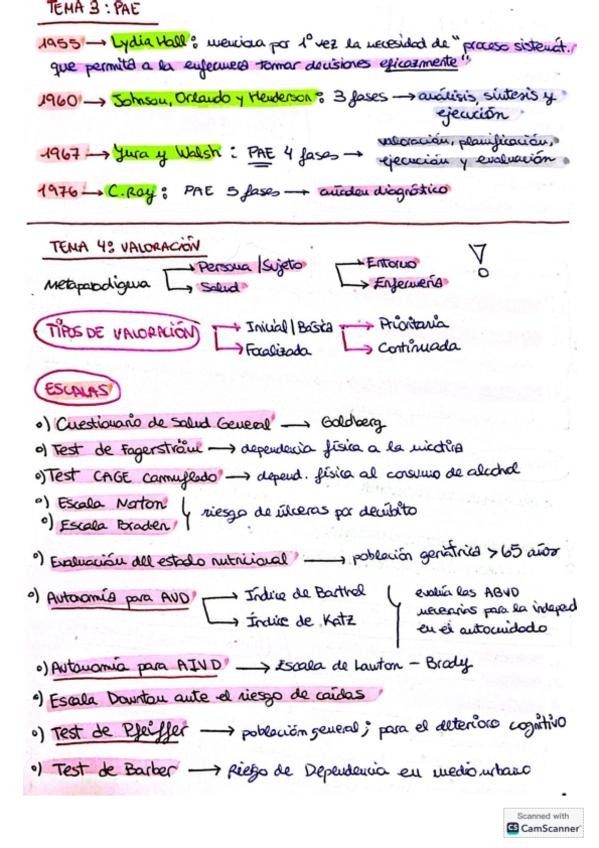 TEMA 3: PAE
1955 → Lydia Hall: menciona por 1º vez la necesidad de "proceso sistemát.
que permita a la enfermera tomar decisiones eficazmente"
1960 → Johnson, Orlando y Henderson: 3 fases → análisis, síntesis y
ejecución
1967 → Yura y Walsh: PAE 4 fases → valoración, planificación,
ejecución y evaluación
1976 → C. Roy: PAE 5 fases → añaden diagnóstico
TEMA 4: VALORACIÓN
Metaparadigma → Persona/Sujeto → Entorno
→ Salud → Enfermería
!
TIPOS DE VALORACIÓN → Inicial/Básica → Prioritaria
→ Focalizada → Continuada
ESCALAS
o) Cuestionario de Salud General → Goldberg
o) Test de Fagerström → dependencia física a la nicotina
o) Test CAGE Camuflado → depend. física al consumo de alcohol
o) Escala Norton
o) Escala Braden
riesgo de úlceras por decúbito
o) Evaluación del estado nutricional → población geriátrica > 65 años
o) Autonomía para AVD → Índice de Barthel
→ Índice de Katz
evalúa las ABVD
necesarias para la independ
en el autocuidado
o) Autonomía para AIVD → Escala de Lawton - Brody
o) Escala Downton ante el riesgo de caídas
o) Test de Pfeiffer → población general; para el deterioro cognitivo
o) Test de Barber → Riesgo de Dependencia en medio urbano
Scanned with
CS CamScanner